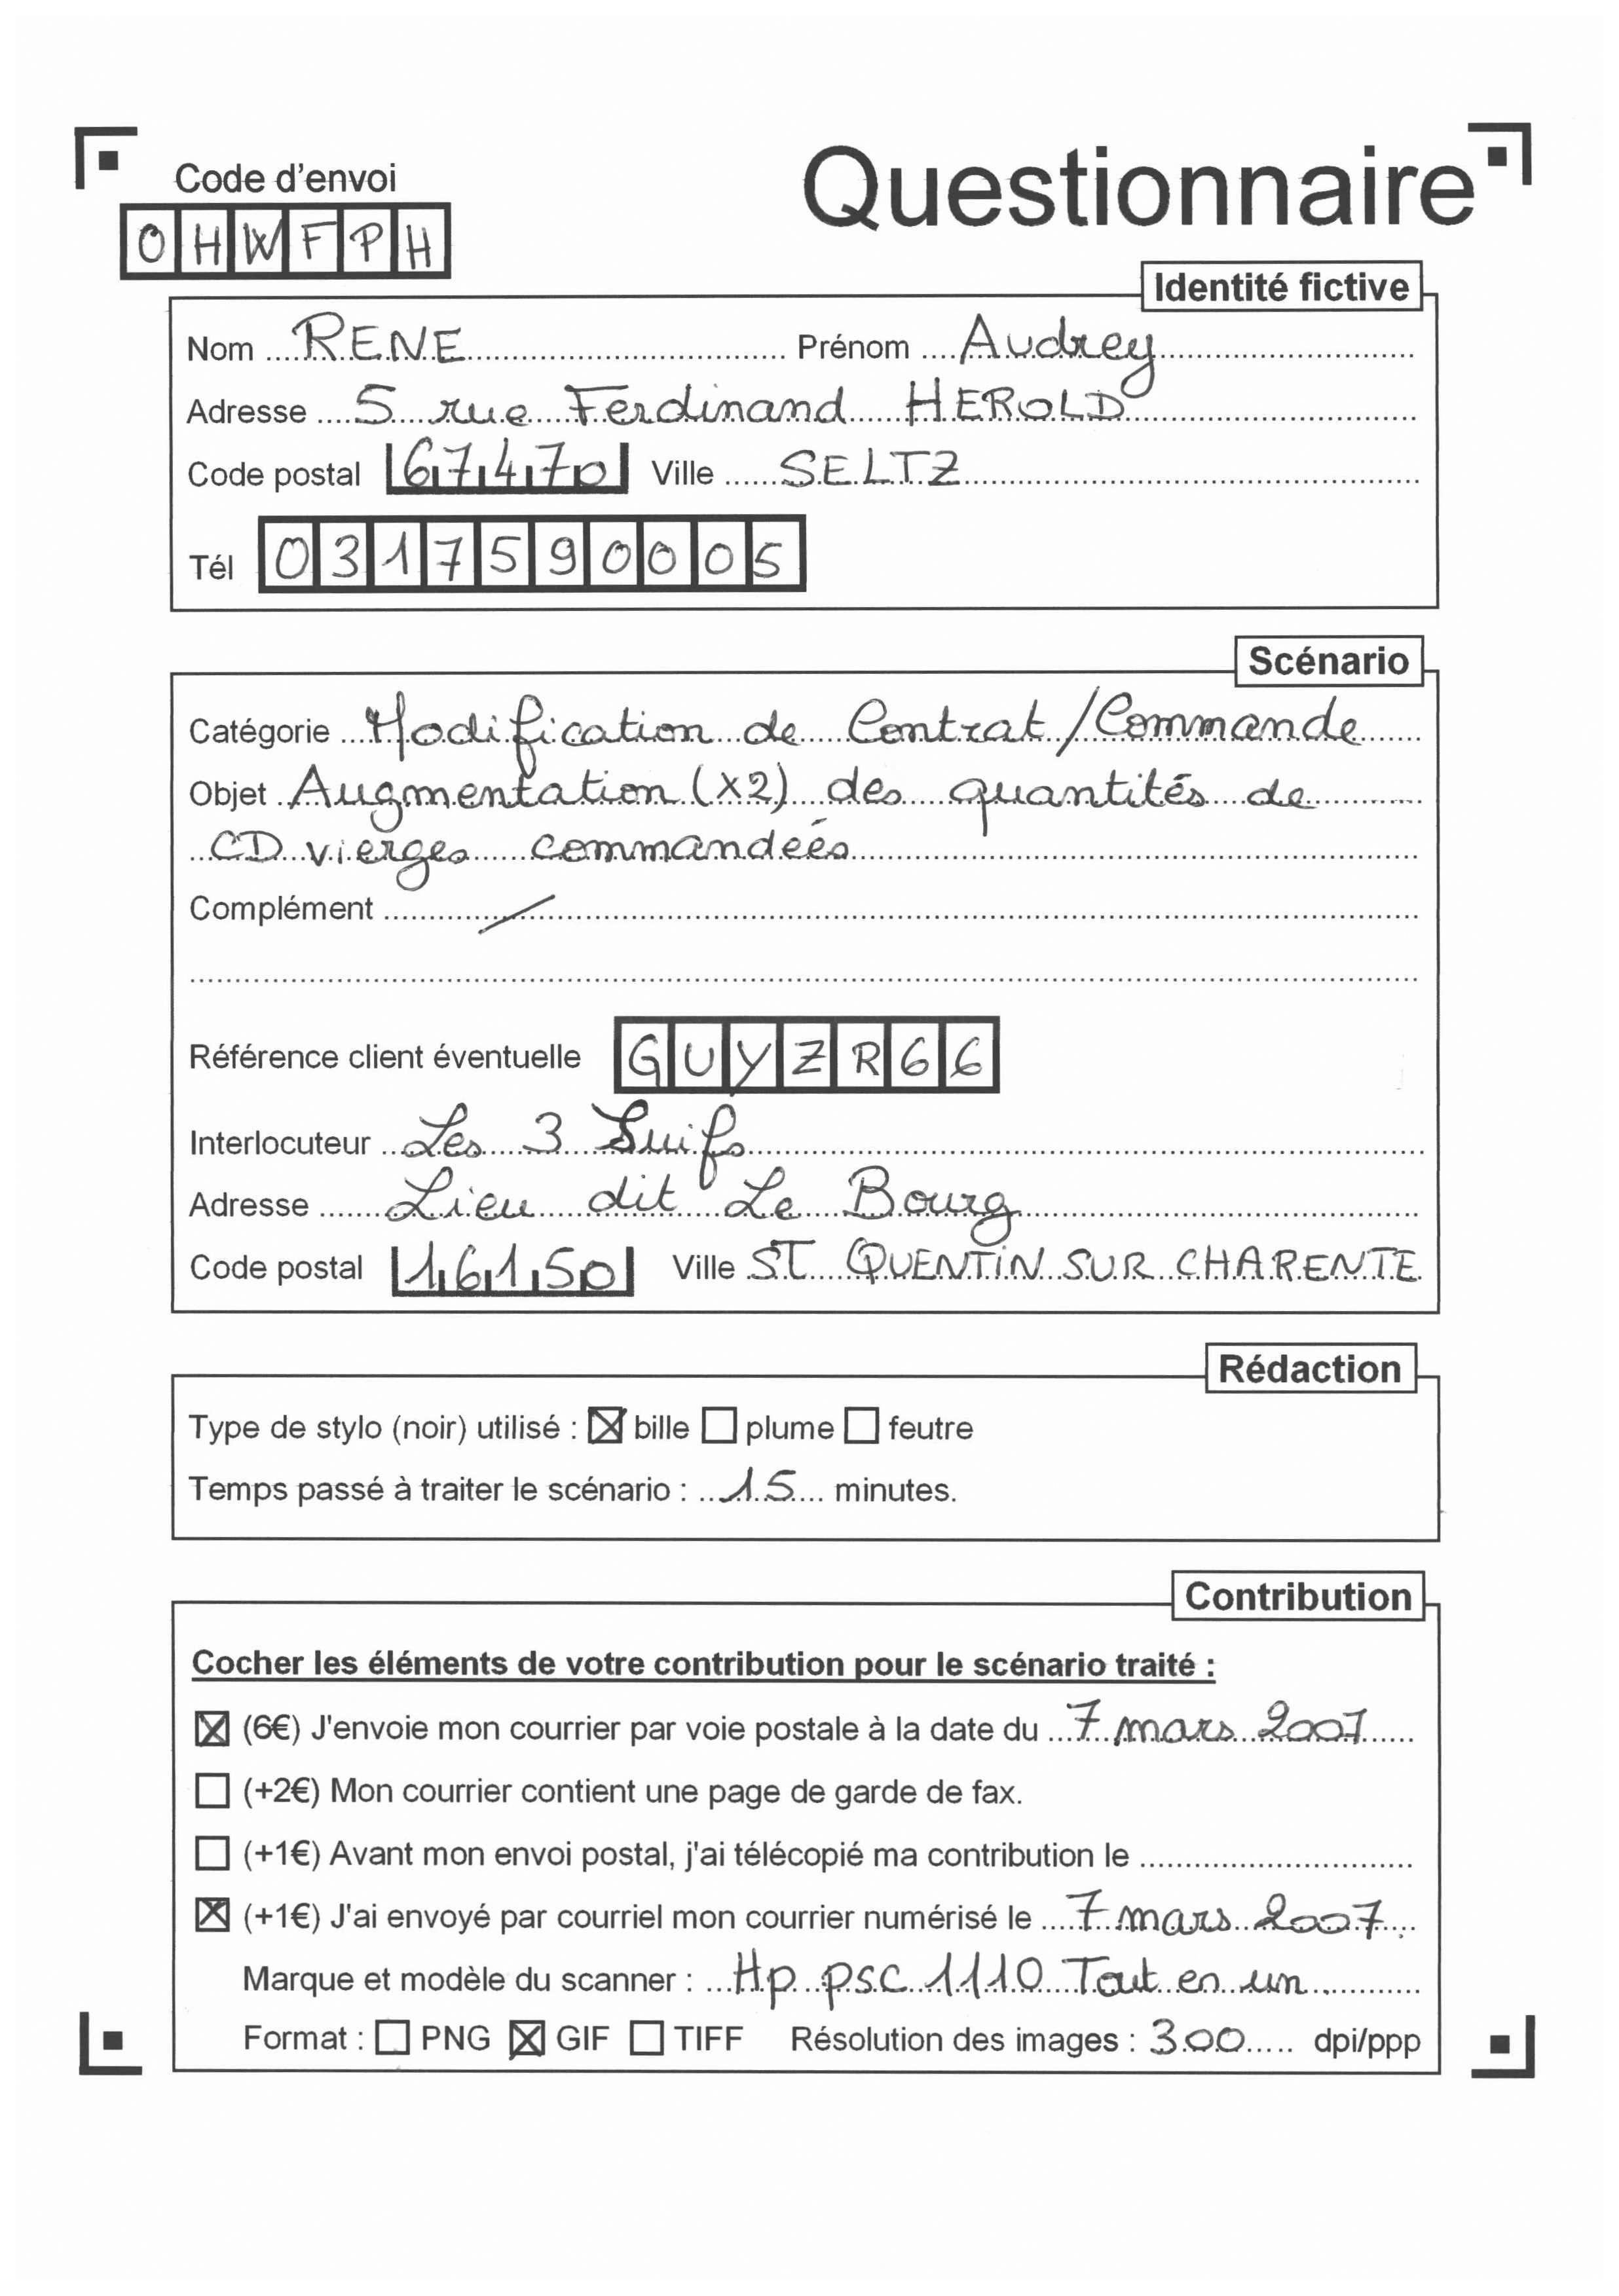 Code d'envoi
Questionnaire
OHWFPH
Identité fictive
Nom RENE Prénom Audrey
Adresse 5 rue Ferdinand HEROLD
Code postal 67470 Ville SELTZ
Tél 0317590005
Scénario
Catégorie Modification de Contrat/Commande
Objet Augmentation (x2) des quantités de
CD vierges commandées
Complément /
Référence client éventuelle GUYZR66
Interlocuteur Les 3 Suifs
Adresse Lieu dit Le Bourg
Code postal 16150 Ville ST QUENTIN SUR CHARENTE
Rédaction
Type de stylo (noir) utilisé : ☒ bille ☐ plume ☐ feutre
Temps passé à traiter le scénario : 15 minutes.
Contribution
Cocher les éléments de votre contribution pour le scénario traité :
☒ (6€) J'envoie mon courrier par voie postale à la date du 7 mars 2007
☐ (+2€) Mon courrier contient une page de garde de fax.
☐ (+1€) Avant mon envoi postal, j'ai télécopié ma contribution le
☒ (+1€) J'ai envoyé par courriel mon courrier numérisé le 7 mars 2007.
Marque et modèle du scanner : Hp psc 1110 Tout en un
Format : ☐ PNG ☒ GIF ☐ TIFF Résolution des images : 300 dpi/ppp